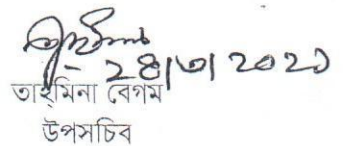 ২৪|৩| ২০২১
তাহমিনা বেগম
উপসচিব